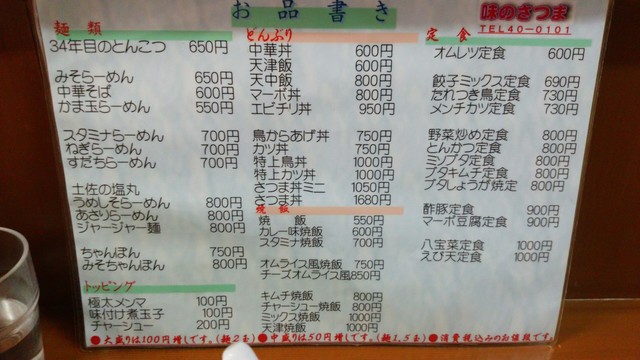 お品書き
味のさつま
TEL40-0101
麺類
34年目のとんこつ 650円
みそらーめん 650円
中華そば 600円
かま玉らーめん 550円
スタミナらーめん 700円
ねぎらーめん 700円
すだちらーめん 700円
土佐の塩丸
うめしそらーめん 800円
あさりらーめん 800円
ジャージャー麺 800円
ちゃんぽん 750円
みそちゃんぽん 800円
トッピング
極太メンマ 100円
味付け煮玉子 100円
チャーシュー 200円
どんぶり
中華丼 600円
天津飯 600円
天中飯 800円
マーボ丼 800円
エビチリ丼 950円
鳥からあげ丼 750円
カツ丼 750円
特上鳥丼 1000円
特上カツ丼 1000円
さつま丼ミニ 1050円
さつま丼 1680円
焼飯
焼飯 550円
カレー味焼飯 600円
スタミナ焼飯 700円
オムライス風焼飯 750円
チーズオムライス風 850円
キムチ焼飯 800円
チャーシュー焼飯 800円
ミックス焼飯 1000円
天津焼飯 1000円
定食
オムレツ定食 600円
餃子ミックス定食 690円
たれつき鳥定食 730円
メンチカツ定食 730円
野菜炒め定食 800円
とんかつ定食 800円
ミソブタ定食 800円
ブタキムチ定食 800円
ブタしょうが焼定 800円
酢豚定食 900円
マーボ豆腐定食 900円
八宝菜定食 1000円
えび天定食 1000円
●大盛りは100円増しです。(麺2玉) ●中盛りは50円増しです。(麺1,5玉) ●消費税込みのお値段です。